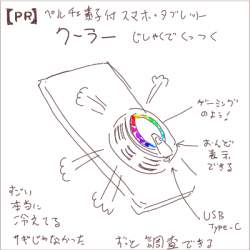 【PR】ペルチェ素子付 スマホ・タブレット
クーラー じしゃくでくっつく
ゲーミング
のよう!
おんど
表示
できる
USB
Type-C
すごい
本当に
冷えてる
サギじゃなかった
おと 調査できる